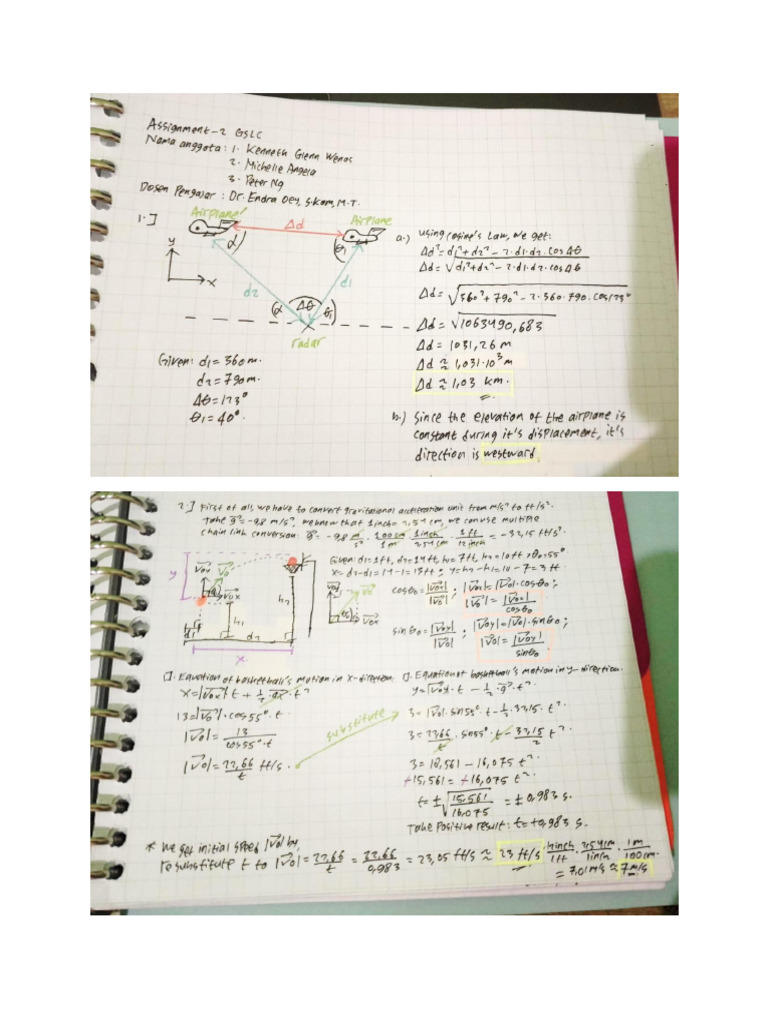 Assignment-2 GSLC
Nama anggota: 1. Kenneth Glenn Wenas
2. Michelle Angela
3. Peter Ng
Dosen Pengajar : Dr. Endra Oey, S.Kom, M.T.
1.]
Airplane'
Δd
Airplane
α
θ1
y
x
d2
d1
α
Δθ
θ1
radar
Given: d1 = 360 m.
d2 = 790 m.
Δθ = 123°
θ1 = 40°.
a.) Using Cosine's Law, we get:
Δd² = d1² + d2² - 2·d1·d2·cos Δθ
Δd = √d1² + d2² - 2·d1·d2·cos Δθ
Δd = √360² + 790² - 2·360·790·cos 123°
Δd = √1063490,683
Δd = 1031,26 m
Δd ≈ 1,031·10³ m
Δd ≈ 1,03 km.
b.) Since the elevation of the airplane is
constant during it's displacement, it's
direction is westward.
2.] First of all, we have to convert gravitational acceleration unit from m/s² to ft/s².
Take g = -9,8 m/s², we know that 1 inch = 2,54 cm, we can use multiple
chain link conversion. g = -9,8 m/s² · 100 cm/1 m · 1 inch/2,54 cm · 1 ft/12 inch = -32,15 ft/s².
Given: d1 = 1 ft, d2 = 14 ft, h1 = 7 ft, h2 = 10 ft, θ0 = 55°
x = d2 - d1 = 14 - 1 = 13 ft ; y = h2 - h1 = 10 - 7 = 3 ft
y
h1
h2
d1
d2
x
cos θ0 = |V0x|/|V0| ; |V0x| = |V0|·cos θ0 ;
|V0| = |V0x|/cos θ0
sin θ0 = |V0y|/|V0| ; |V0y| = |V0|·sin θ0 ;
|V0| = |V0y|/sin θ0
□. Equation of basketball's motion in x-direction:
x = |V0x|·t + 1/2·gx·t²
13 = |V0|·cos 55°·t
|V0| = 13/cos 55°·t
|V0| = 22,66/t ft/s.
substitute
□. Equation of basketball's motion in y-direction.
y = |V0y|·t - 1/2·g·t²
3 = |V0|·sin 55°·t - 1/2·32,15·t²
3 = 22,66/t·sin 55°·t - 32,15/2 t².
3 = 18,561 - 16,075 t²
+15,561 = +16,075 t²
t = ±√15,561/16,075 = ±0,983 s.
Take Positive result: t = +0,983 s.
* We get initial speed |V0| by,
resubstitute t to |V0| = 22,66/t = 22,66/0,983 = 23,05 ft/s ≈ 23 ft/s · 12 inch/1 ft · 2,54 cm/1 inch · 1 m/100 cm
= 7,01 m/s ≈ 7 m/s